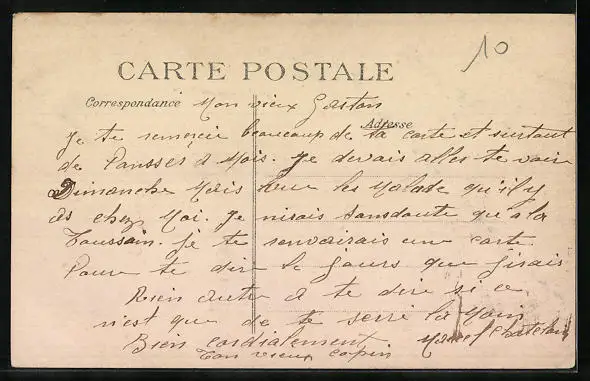 10
CARTE POSTALE
Correspondance Mon vieux Gaston
Adresse
Je te remercie beaucoup de ta carte et surtout
de Pansser a Mois. Je devais aller te voir
Dimanche Mais les Malade qu'il y
as chez Moi. Je nirais sansdoute qu'a la
Toussain. Je te renvairais une carte
Pour te dire le Jours que Jirais
Rien autre a te dire si ce
n'est que de te serré la Main
Bien cordialement Marcel Chatelain
Ton vieux copin